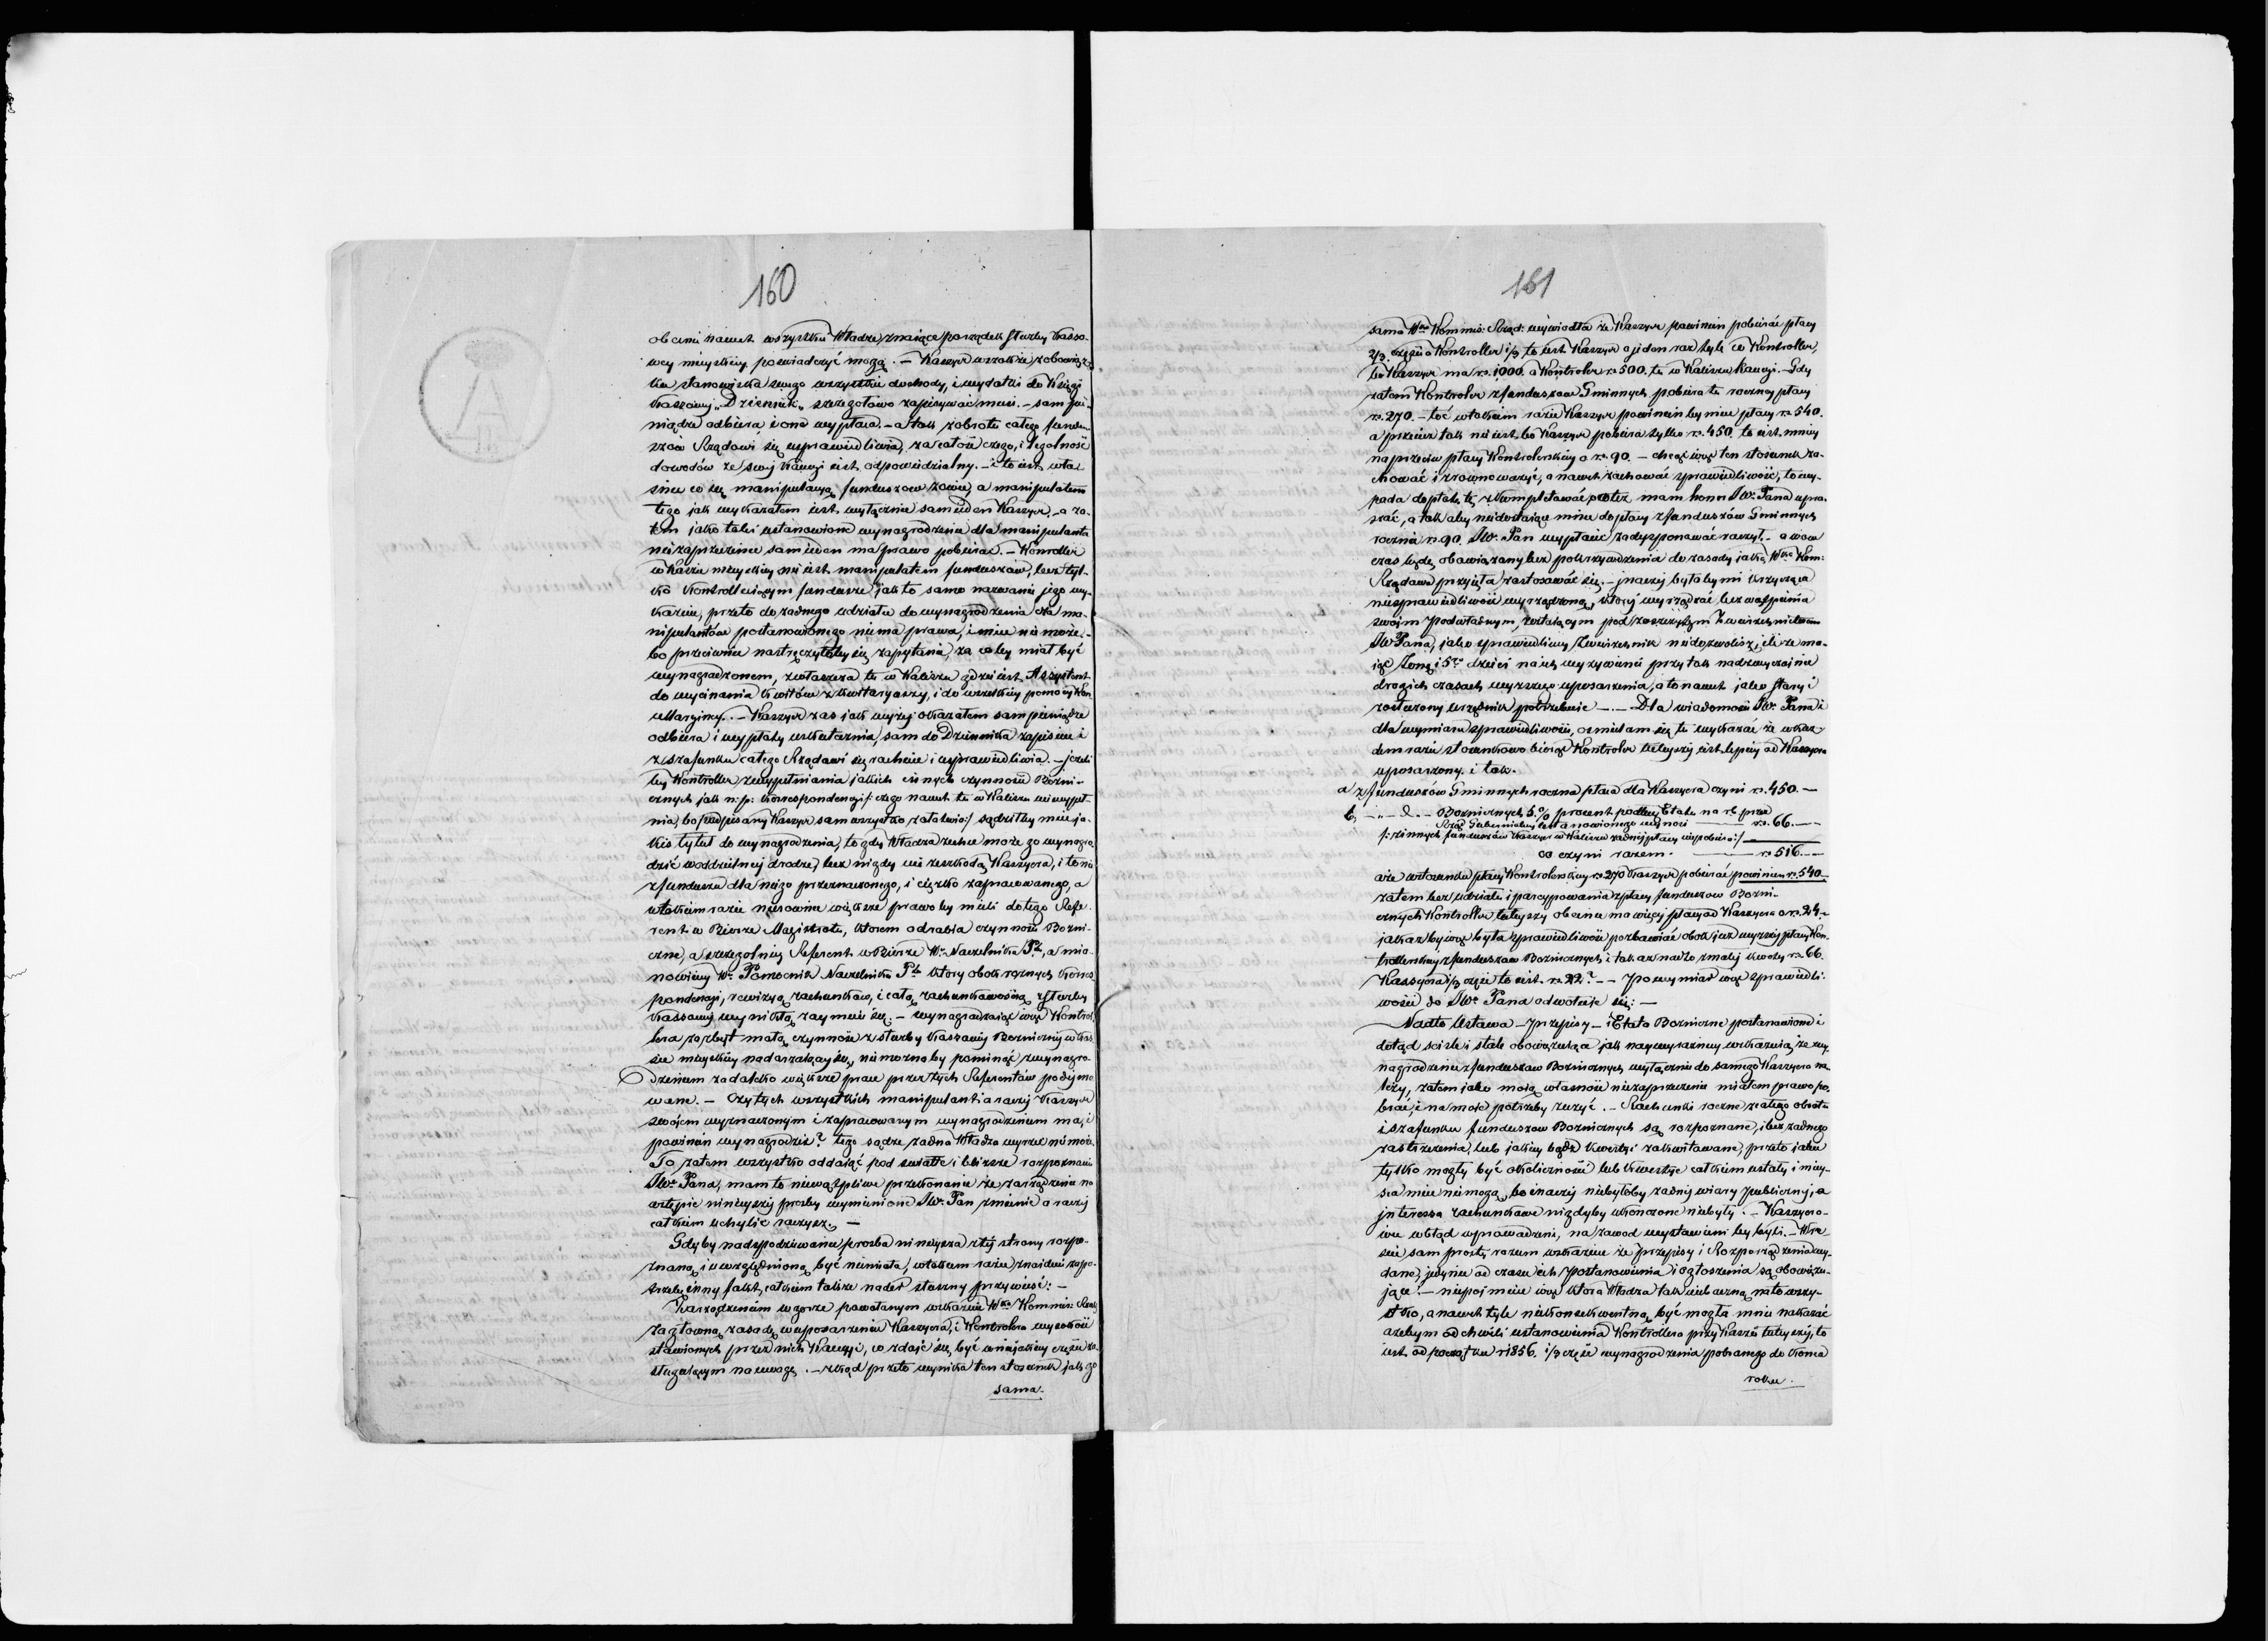 160
obecnie nawet wszystkie Władze znaiące porządek służby Kasso-
wey mieyskiey poświadczyć mogą. — Kassyer wszakże z obowiąz-
ku stanowiska swego wszystkie dochody, i wydatki do Księgi
Kassowey „Dziennik" szczegołowo zapisywać musi. — sam pie-
niądze odbiera i one wypłaca. — a tak z obrotu całego fundu-
szów Rządowi się usprawiedliwia, za całość czego, i legalność
dowodów ze swej kaucyi iest odpowiedzialny. — i to iest wła-
śnie co się manipulacyą funduszow zowie, a manipulatem
tego jak wykazałem iest wyłącznie sam ieden Kassyer. — a za-
tem jako taki ustanowione wynagrodzenie dla manipulanta
niezaprzeczenie sam ieden ma prawo pobierać. — Kontroller
w kassie mieyskiey nie iest manipulatem funduszów, lecz tyl-
ko kontrolluiącym fundusze jak to samo nazwanie jego wy-
kazuie, przeto do żadnego udziału do wynagrodzenia dla ma-
nipulantów postanowionego niema prawa, i mieć nie może. —
bo przeciwnie nastręczyłoby się zapytanie, za co by miał być
wynagradzonem, zwłaszcza tu w Kaliszu gdzie iest Assystent
do wycinania kwitów z kwitaryuszy, i do wszelkiey pomocy Kon-
. — Kassyer zas jak wyżej okazałem sam pieniądze
odbiera i wypłaty uskutecznia, sam do Dziennika zapisuie i
z szafunku całego Rządowi się rachuie i usprawiedliwia. — jeżeli
by Kontroller z wypełniania jakich innych czynności Bożni-
cznych jak n: p: korrespondencyi /: czego nawet tu w Kaliszu nie wypeł-
nia, bo podpisany Kassyer sam wszystko załatwia :/ sądził by mieć ja-
kis tytuł do wynagrodzenia, to gdy Władza zechce może go wynagro-
dzić w oddzielney drodze, lecz nigdy nie ze szkodą Kassyera, i to nie
z funduszu dla niego przeznaczonego, i ciężko zapracowanego, a
w takiem razie nierownie większe prawo by mieli do tego Refe-
rent w Biurze Magistratu, ktorem odrabia czynności Bożni-
czne, a szczegolniey Referent w Biurze Wo Naczelnika Ptu, a mia-
nowiciey Wy Pomocnik Naczelnika Ptu ktory obok rożnych korres-
pondencyi, rewizyą rachunkow, i całą rachunkowością z służby
kassowej wynikłą zaymuie się. — wynagradzaiąc więc Kontrol-
lera za zbyt małą czynność z służby kassowey Bożniczney w kas-
sie mieyskiey nadarzaiącą się, nie można by pominąć z wynagro-
dzeniem za daleko większe prace przez tych Referentów podeymo-
wane. — Czy tych wszystkich manipulant a raczej Kassyer
swoiem wyznaczonym i zapracowanym wynagrodzeniem ma, i
powinien wynagrodzić? tego sądzę żadna Władza wyrzec nie może.
To zatem wszystko oddaiąc pod światłe i bliższe rozpoznanie
JWo Pana, mam to niewątpliwe przekonanie że zarządzenie na
wstępie ninieyszej prośby wymienione JWy Pan zmienić a raczej
całkiem uchylić raczysz. —
Gdyby nadspodziewanie prośba ninieysza z tej strony rozpo-
znaną i uwzględnioną być nie miała, w takiem razie znaiduie zapo-
trzebę inny fakt, całkiem także nader słuszny przywieść: —
Zarządzeniem w gorze powołanym wskazuie Wka Kommis: Rząd:
za głowną zasadę w uposarzeniu Kassyera, i Kontrolera wysokość
stawionych przez nich Kaucyi, co zdaje się być w niejakiey części za-
sługuiącym na uwagę. — zkąd przeto wynika ten stosunek jak go
sama.
161
sama Wka Kommis: Rząd: wywiodła że Kassyer powinien pobierać płacy
2/3 części a Kontroller 1/3 to iest Kassyer o jeden raz tyle co Kontroller,
bo Kassyer ma rs. 1000. a Kontroler rs 500. tu w Kaliszu kaucyi. — Gdy
zatem Kontroler z funduszow Gminnych pobiera tu roczney płacy
rs. 270. — toć w takiem razie Kassyer powinien by mieć płacy rs 540.
a przecież tak nie iest bo Kassyer pobiera tylko rs. 450. to iest mniey
naprzeciw płacy Kontrolerskiey o rs. 90. — chcąc więc ten stosunek za-
chować i zrownoważyć, a nawet zachować sprawiedliwość, to wy-
pada dopłatę tę skompletować o co też mam honor JWo Pana upra-
szać, a tak aby niedostaiące mnie do płacy z funduszów Gminnych
rocznie rs. 90. JWy Pan wypłacić zadysponować raczył. — a wow-
czas będę obowiązany bez pokrzywdzenia do zasady jaką Wka Kom:
Rządowa przyięła zastosować się. — jnaczej byłoby mi krzycząca
niesprawiedliwość wyrządzoną, ktorej wyrządzać bez wątpienia
swoim podwładnym, zostaiącym pod zaszczytnym Zwierzchnictwem
JWo Pana, jako sprawiedliwy Zwierzchnik niedozwolisz, ile że ma-
iąc Żonę i 5ro dzieci na ich wyżywienie przy tak nadzwyczajnie
drogich czasach wyższego uposarzenia, a to nawet jako stary i
zasłużony urzędnik potrzebuie — . — Dla wiadomości JWo Pana i
dla wymiaru sprawiedliwości, ośmielam się tu wykazać że w każ-
dem razie stosunkowo biorąc Kontroler tuteyszy iest lepiey od Kassyera
uposarzony. i tak.
a z funduszów Gminnych roczna płaca dla Kassyera czyni rs. 450. —
b, — „ — d. — Bożnicznych 5 % procent podług Etatu na r. b. przez
Rząd Gubernialny ustanowionego wynosi — rs. 66. —
/: z innych funduszów Kassyer w Kaliszu żadnej płacy niepobiera :/
co czyni razem. — rs 516. —
a że w stosunku płacy Kontrolerskiey rs 270 Kassyer pobierać powinien rs. 540 —
zatem bez udziału i parcypowania z płacy funduszow Bożni-
cznych Kontroller tuteyszy obecnie ma więcej płacy od Kassyera o rs. 24. —
jakaż by więc była sprawiedliwość pozbawiać obok już wyższey płacy Kon-
trollerskiey z funduszow Bożnicznych i tak aż nadto zmałej kwoty rs 66.
Kassyera 1/3 części to iest rs. 22? — — Po wymiar więc sprawiedli-
wości do JWo Pana odwołuje się: —
Nadto Ustawa — Przepisy — i Etata Bożniczne postanowione i
dotąd ścisle i stale obowiązuiąca jak naywyraźniey wskazuią, że wy-
nagrodzenie z funduszow Bożnicznych wyłącznie do samego Kassyera na-
leży, zatem jako moią własność niezaprzeczenie miałem prawo po-
brać, i na moie potrzeby zużyć. — Rachunki roczne z całego obrotu
i szafunku funduszow Bożnicznych są rozpoznane, i bez żadnego
zastrzeżenia, lub jakiey bądź kwestyi zakwitowane, przeto jakie
tylko mogły być okoliczności lub kwestye całkiem ustały i miey-
sca mieć nie mogą, bo inaczej niebyłoby żadnej wiary publicznej, a
jnteressa rachunkowe nigdyby ukończone niebyły. — Kassyero-
wie w błąd wprowadzeni, na zawod wystawieni by byli. — Wre-
ście sam prosty rozum wskazuie że przepisy i Rozporządzenia wy-
dane, jedynie od czasu ich Postanowienia i ogłoszenia są obowiązu-
jące. — niepojmuie więc ktora Władza tak niebaczną na to wszy-
stko, a nawet tyle niekonsekwentną być mogła mnie nakazać
ażebym od chwili ustanowienia Kontrollera przy Kassie tuteyszej, to
iest od początku r 1856. 1/3 część wynagrodzenia pobranego do konca
roku.